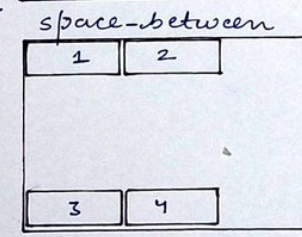 space-between
1 2
3 4